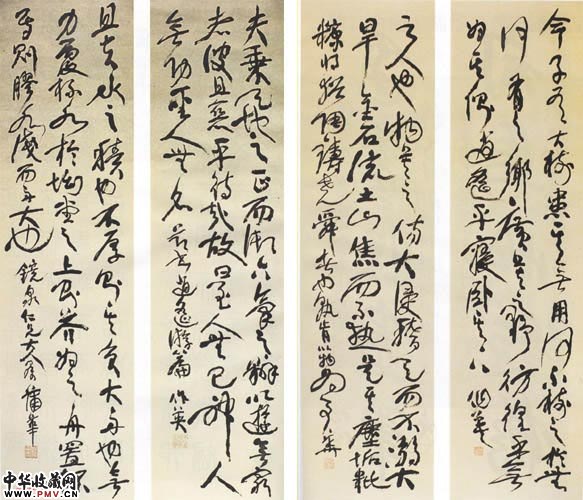 今子有大樹患其無用何不樹之於無
何有之鄉廣莫之野彷徨乎無
為其側逍遙乎寢臥其下 作英
之人也物莫之傷大浸稽天而不溺大
旱金石流土山焦而不熱是其塵垢粃
糠將猶陶鑄堯舜者也孰肯以物為事 華
夫乘天地之正而御六氣之辯以遊無窮
者彼且惡乎待哉故曰至人無己神人
無功聖人無名 逍遙游篇 作英
且夫水之積也不厚則其負大舟也無
力覆杯水於坳堂之上則芥為之舟置杯
焉則膠水淺而舟大也 鏡泉仁兄大人 蒲華
中华收藏网
WWW.PMV.CN